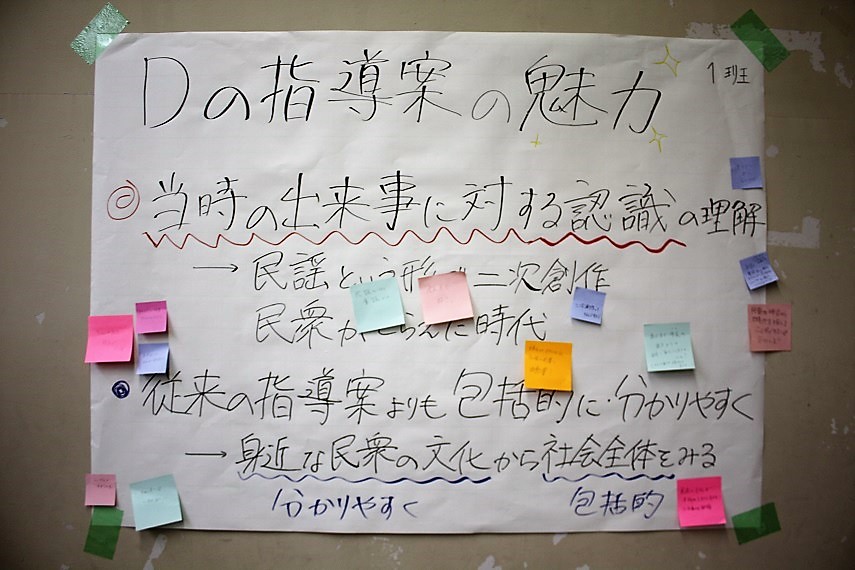 Dの指導案の魅力
1班
◎当時の出来事に対する認識の理解
→民謡という形で二次創作
民衆がとらえた時代
◎従来の指導案よりも包括的に・分かりやすく
→身近な民衆の文化から社会全体をみる
分かりやすく 包括的